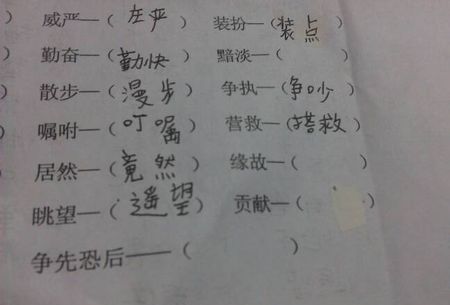 )威严—(庄严) 装扮—(装点)
)勤奋—(勤快) 黯淡—( )
)散步—(漫步) 争执—(争吵)
)嘱咐—(叮嘱) 营救—(搭救)
)居然—(竟然) 缘故—( )
眺望—(遥望) 贡献—( )
争先恐后——( )